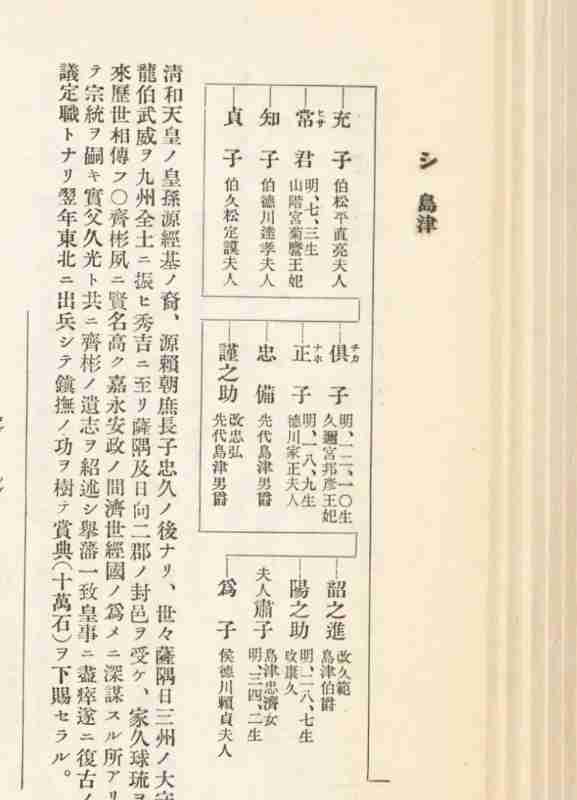 シ 島津
充子 伯松平直亮夫人
ヒサ
常君 明、七、三生
山階宮菊麿王妃
知子 伯德川達孝夫人
貞子 伯久松定謨夫人
チカ
俱子 明、一二、一〇生
久邇宮邦彥王妃
ナホ
正子 明、一八、九生
德川家正夫人
忠備 先代島津男爵
謹之助 改忠弘
先代島津男爵
韶之進 改久範
島津伯爵
陽之助 明、二八、七生
改康久
夫人肅子 島津忠濟女
明、三四、二生
爲子 侯德川賴貞夫人
淸和天皇ノ皇孫源經基ノ裔、源賴朝庶長子忠久ノ後ナリ、世々薩隅日三州ノ大守
龍伯武威ヲ九州全土ニ振ヒ秀吉ニ至リ薩隅及日向二郡ノ封邑ヲ受ケ、家久琉球ヲ
來歷世相傳フ〇齊彬夙ニ賢名高ク嘉永安政ノ間濟世經國ノ爲メニ深謀スル所アリ
テ宗統ヲ嗣キ實父久光ト共ニ齊彬ノ遺志ヲ紹述シ擧藩一致皇事ニ盡瘁遂ニ復古ノ
議定職トナリ翌年東北ニ出兵シテ鎭撫ノ功ヲ樹テ賞典(十萬石)ヲ下賜セラル。